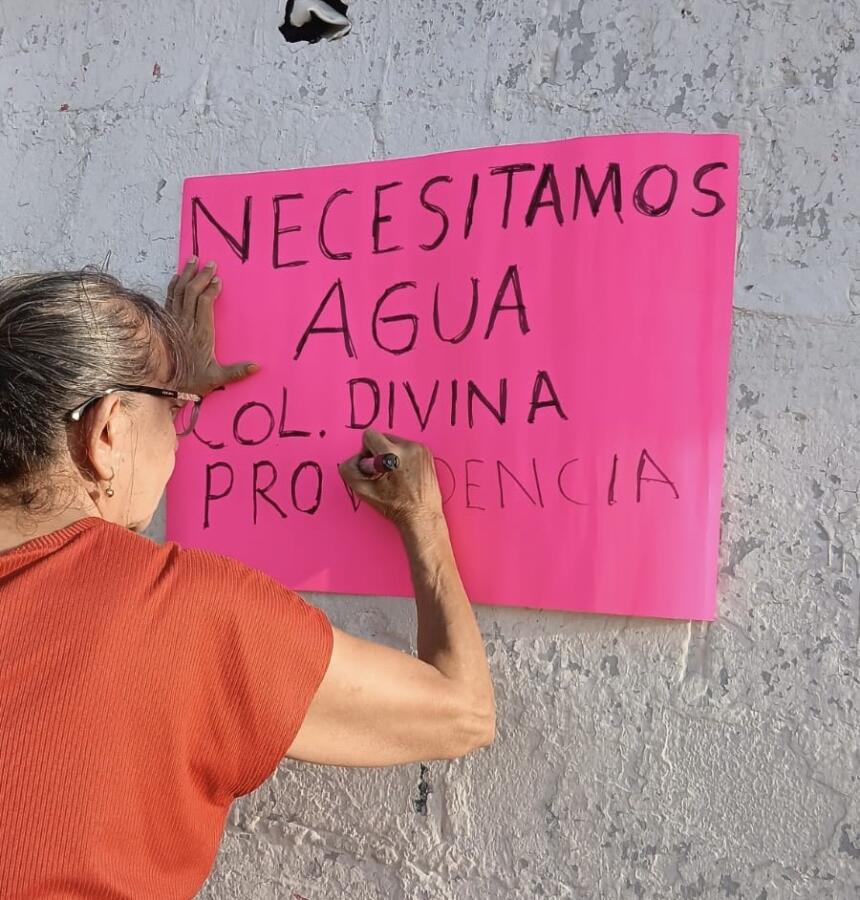 NECESITAMOS
AGUA
COL. DIVINA
PROVIDENCIA